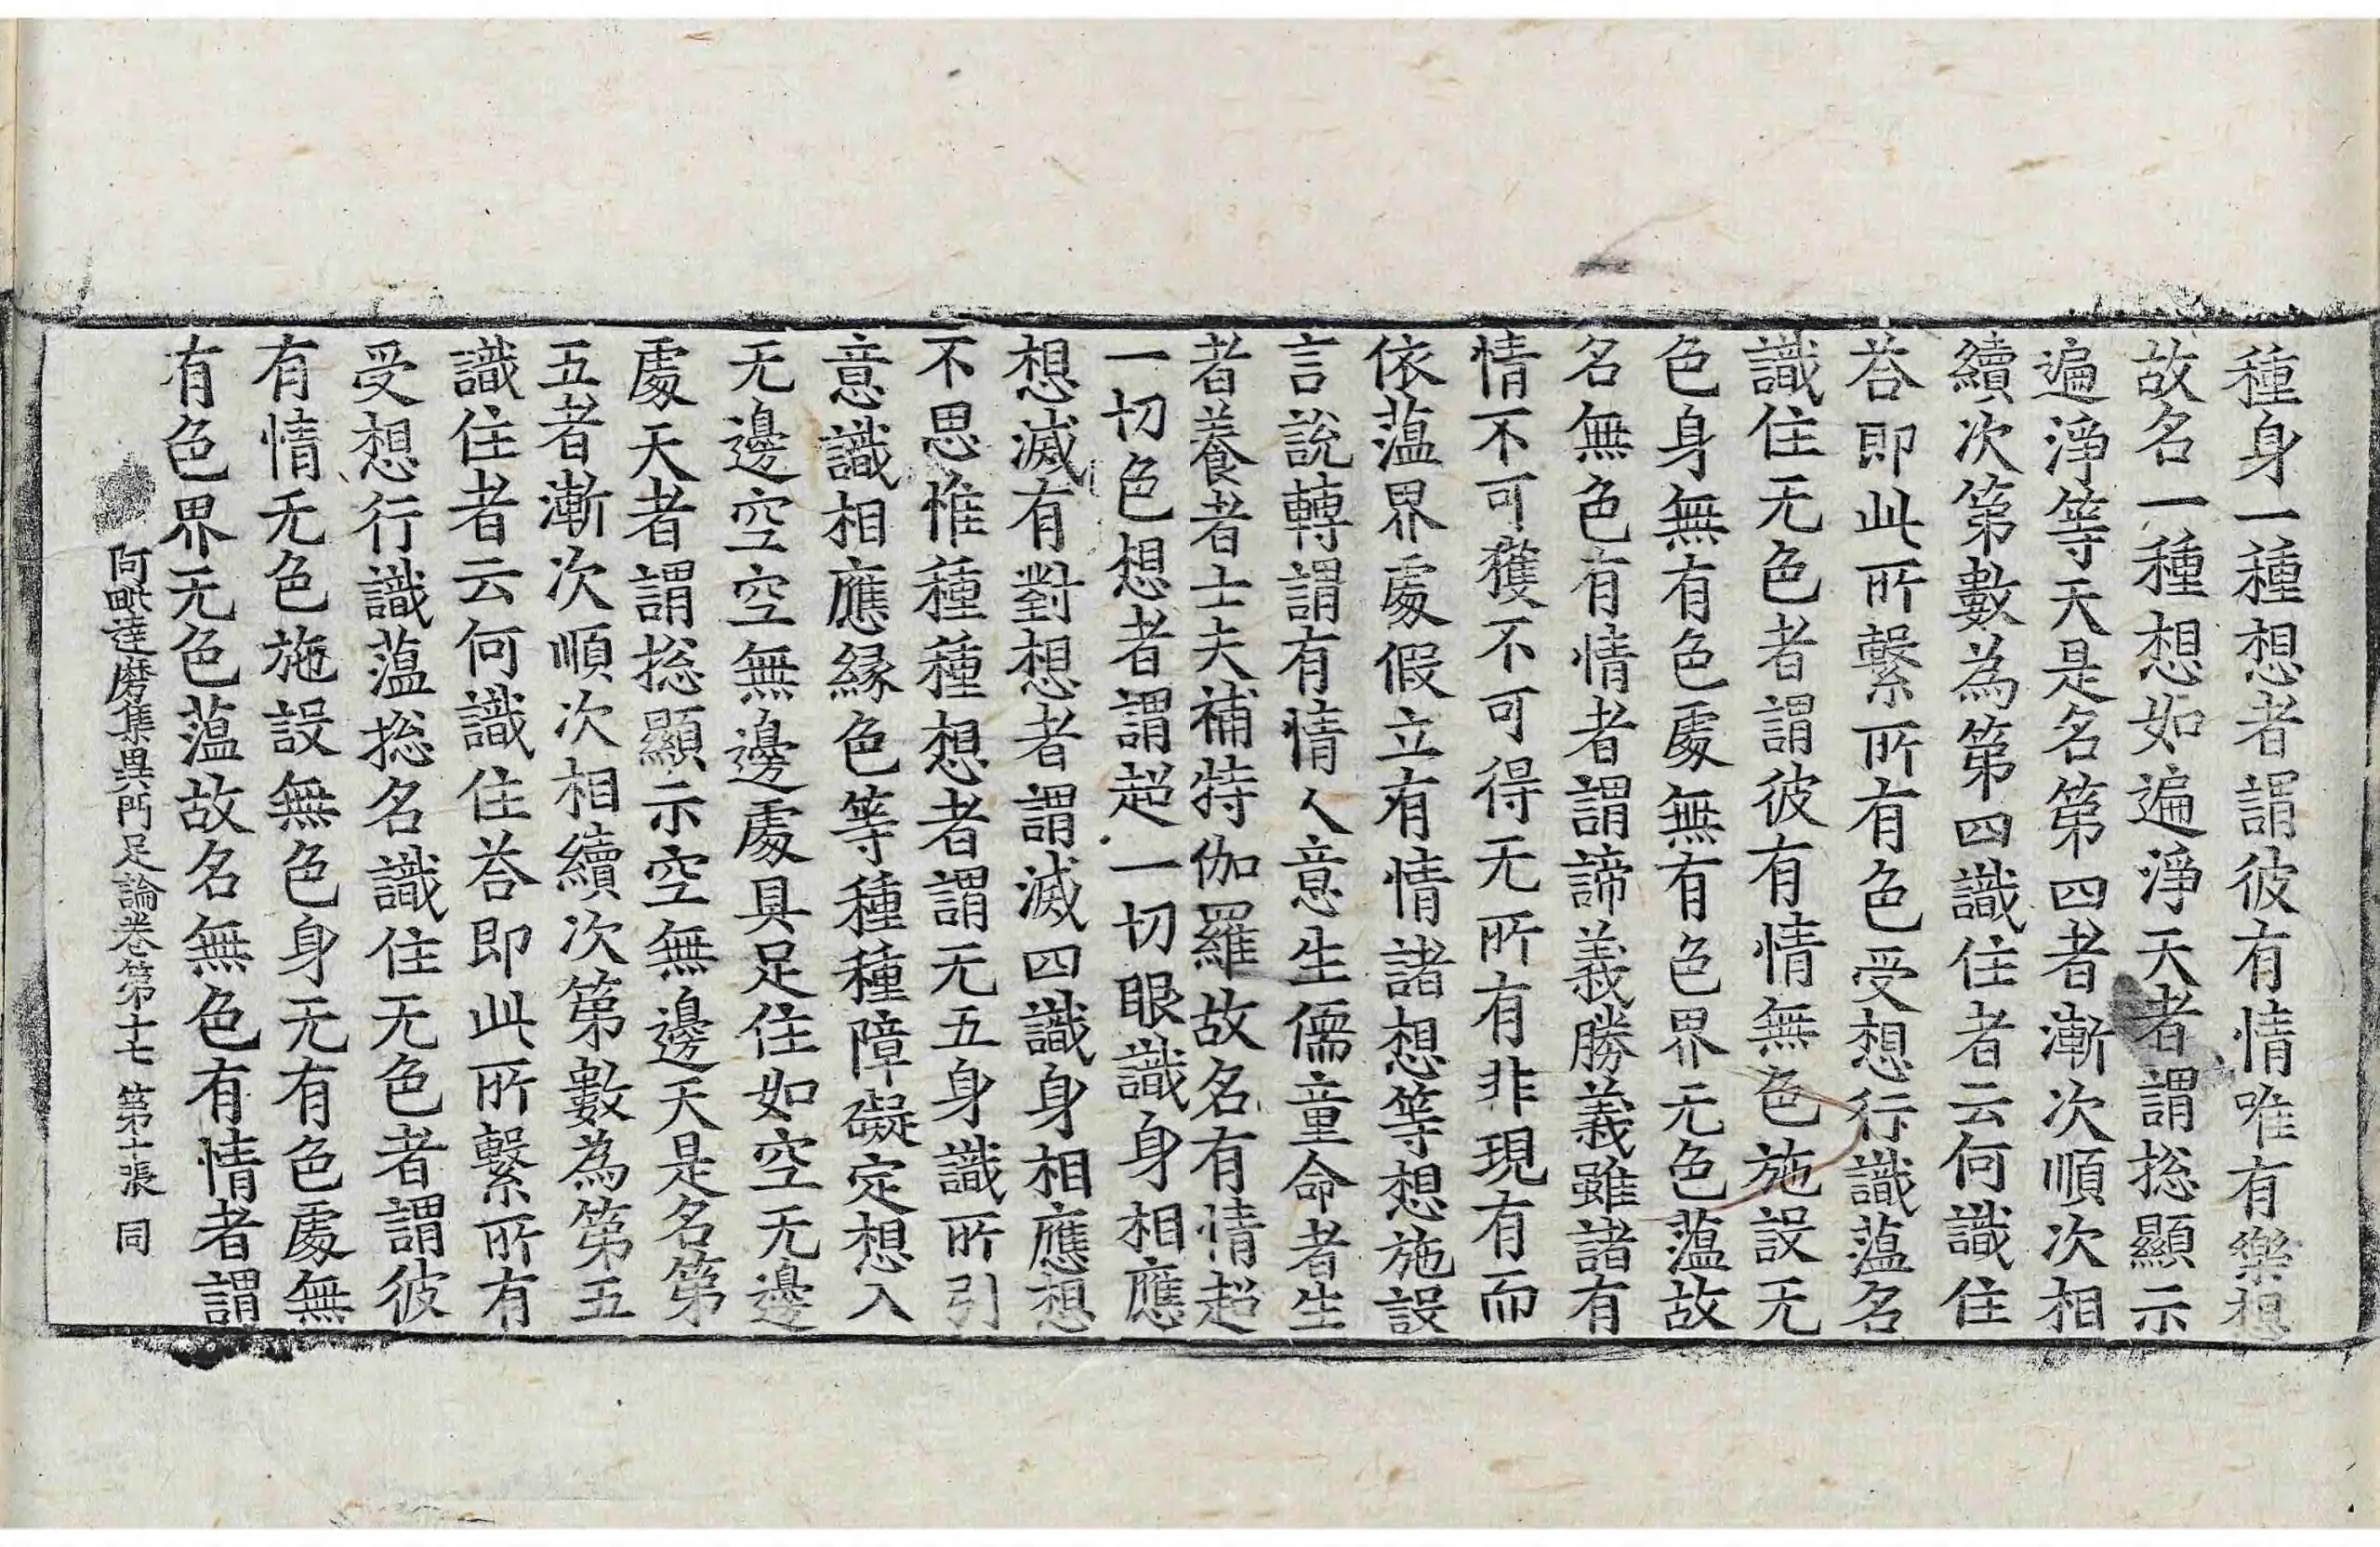 種身一種想者謂彼有情唯有樂想
故名一種想如遍淨天者謂捴顯示
遍淨等天是名第四者漸次順次相
續次第數為第四識住者云何識住
荅即此所繫所有色受想行識蕰名
識住无色者謂彼有情無色施設无
色身無有色處無有色界无色蕰故
名無色有情者謂諦義勝義雖諸有
情不可獲不可得无所有非現有而
依蕰界處假立有情諸想等想施設
言說轉謂有情人意生儒童命者生
者養者士夫補特伽羅故名有情超
一切色想者謂超一切眼識身相應
想滅有對想者謂滅四識身相應想
不思惟種種想者謂无五身識所引
意識相應緣色等種種障礙定想入
无邊空空無邊處具足住如空无邊
處天者謂捴顯示空無邊天是名第
五者漸次順次相續次第數為第五
識住者云何識住荅即此所繫所有
受想行識蕰捴名識住无色者謂彼
有情无色施設無色身无有色處無
有色界无色蕰故名無色有情者謂
阿毗達磨集異門足論卷第十七 第十張 同